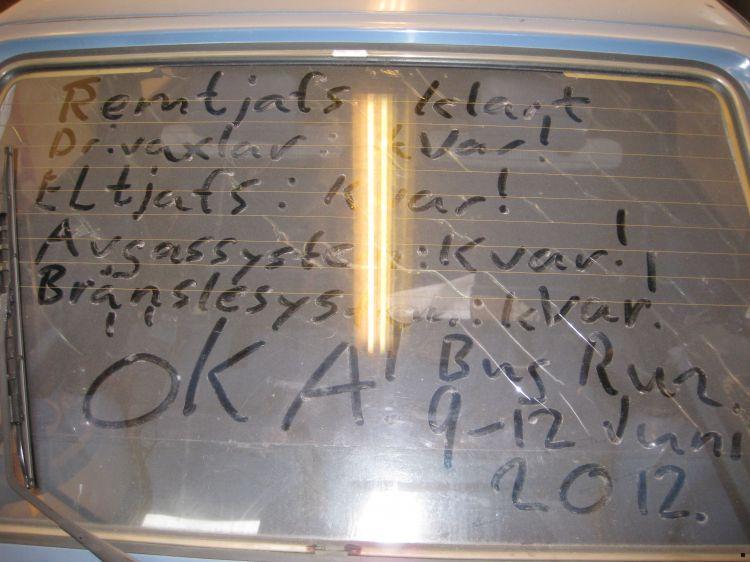 Remtjafs klart
Drivaxlar: kvar!
ELtjafs: kvar!
Avgassystem: kvar!
Bränslesystem: kvar!
ÖKA! Bug Run.
9-12 Juni
2012.